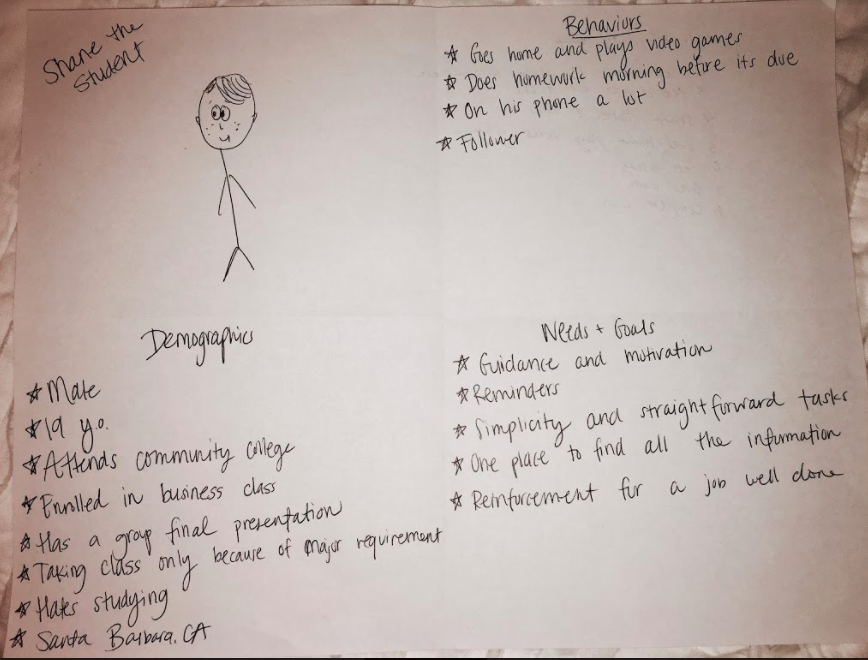 Shane the
Student
Behaviors
☆ Goes home and plays video games
☆ Does homework morning before its due
☆ On his phone a lot
☆ Follower
Demographics
☆ Male
☆ 19 y.o.
☆ Attends community college
☆ Enrolled in business class
☆ Has a group final presentation
☆ Taking class only because of major requirement
☆ Hates studying
☆ Santa Barbara, CA
Needs + Goals
☆ Guidance and motivation
☆ Reminders
☆ Simplicity and straightforward tasks
☆ One place to find all the information
☆ Reinforcement for a job well done